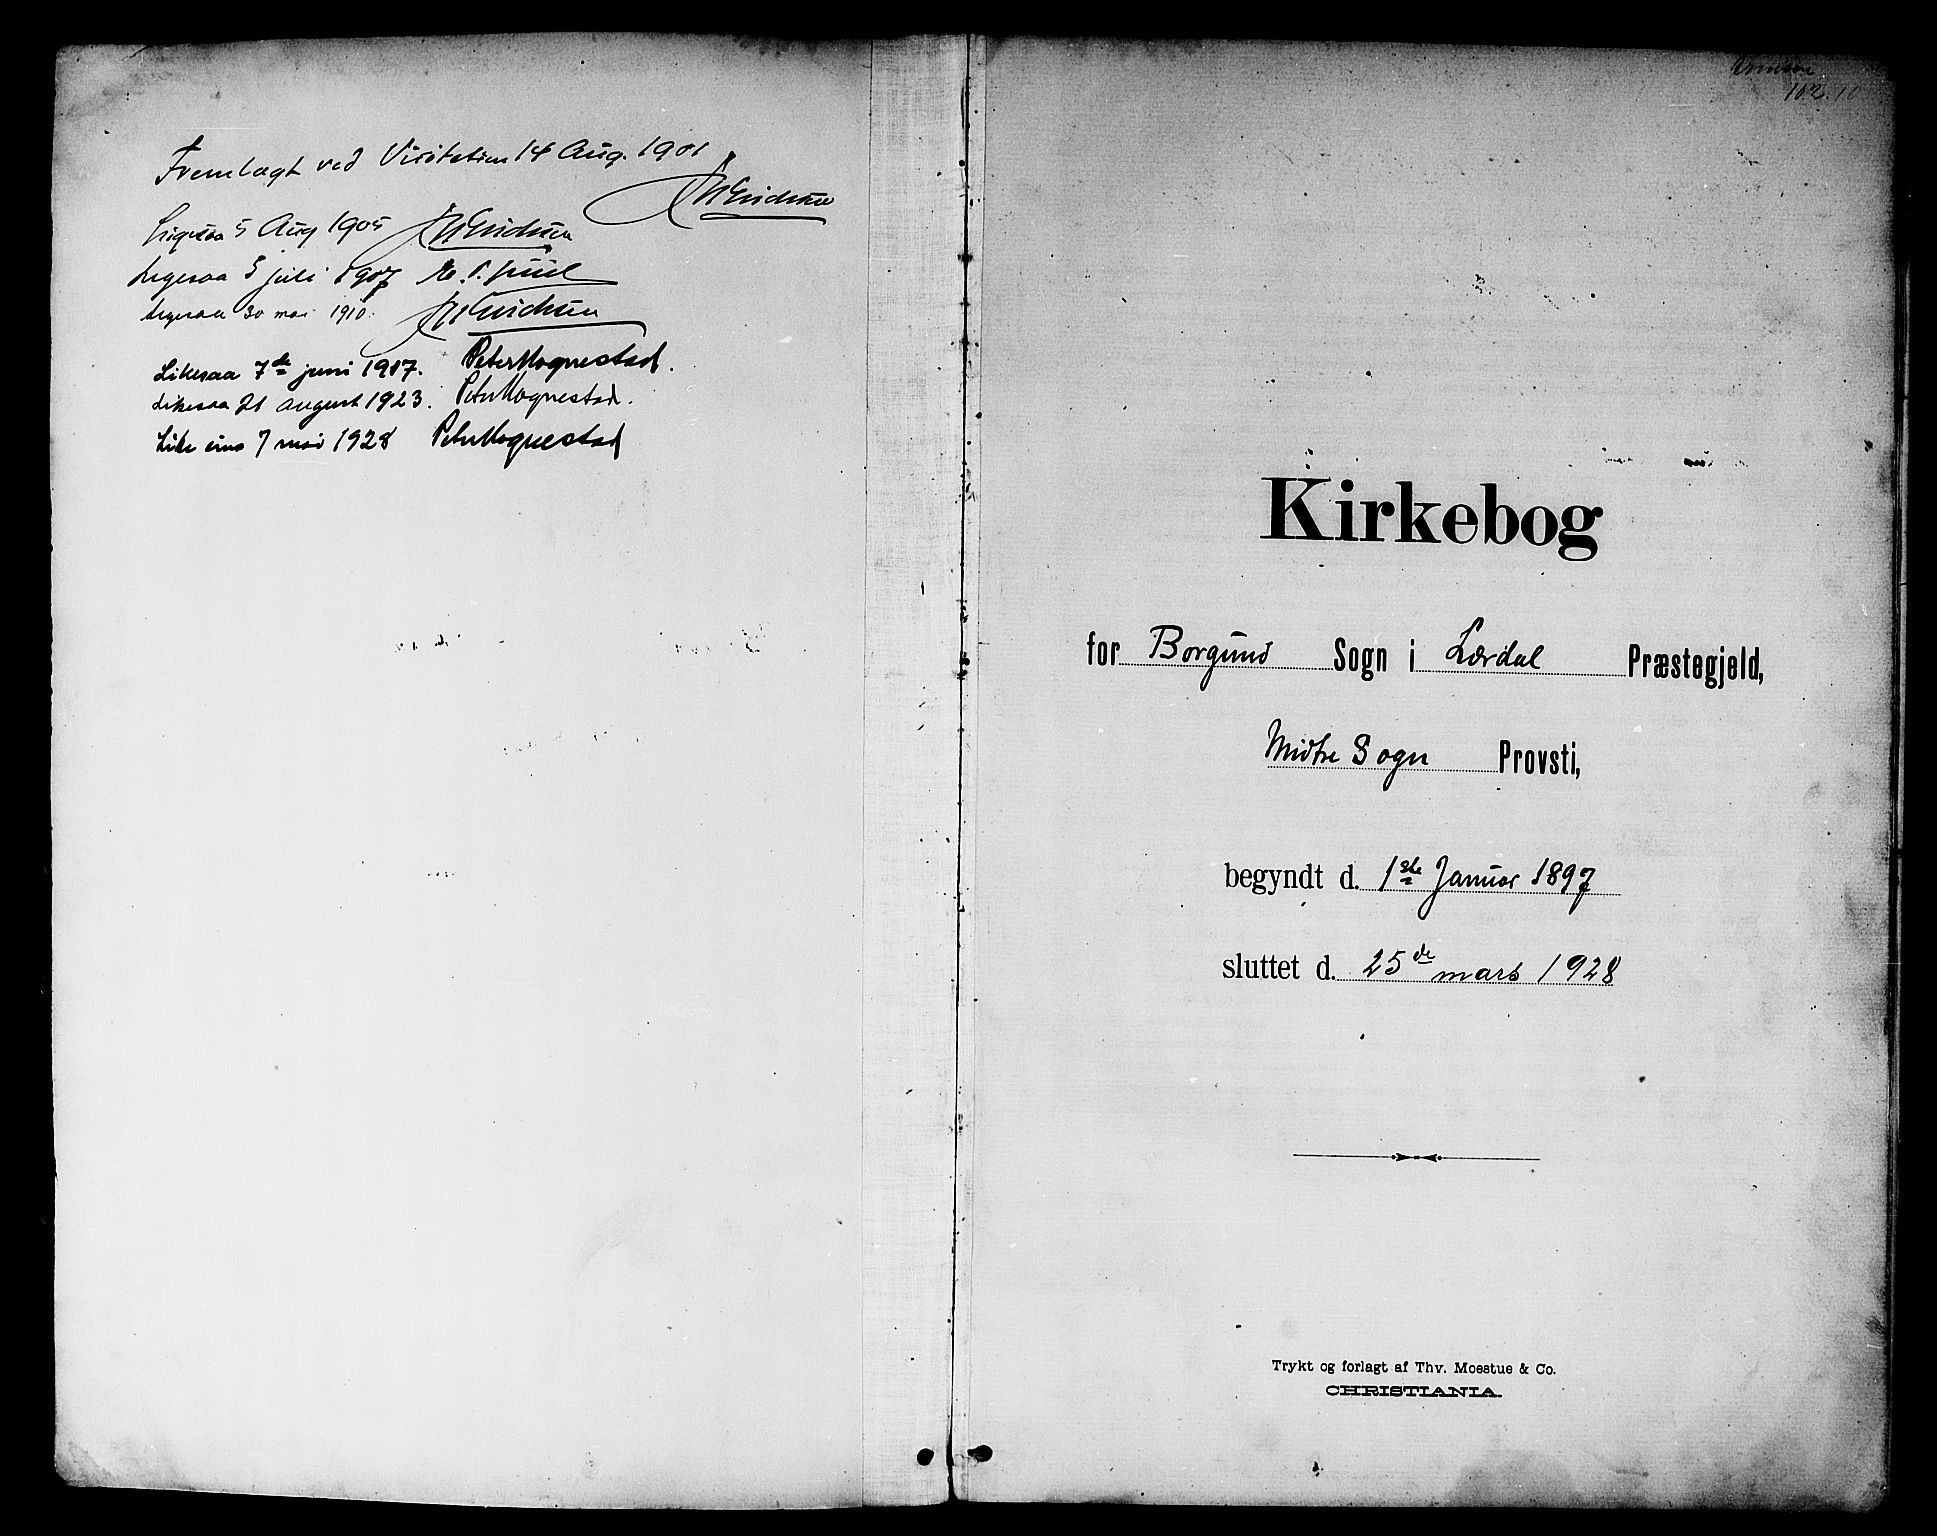 Fremlagt ved Visitatien 14 Aug. 1901
JWEridsen
Ligesaa 5 Aug 1905
Ligesaa 5 juli 1907
Ligesaa 30 mai 1910.
Likesaa 7de juni 1917. Peter Hognestad.
Likesaa 21 august 1923. Peter Hognestad.
Like eins 7 mai 1928 Peter Hognestad
102.10
Kirkebog
for Borgund Sogn i Lærdal Præstegjeld,
Midtre Sogn Provsti,
begyndt d. 1ste Januar 1897
sluttet d. 25de mars 1928
Trykt og forlagt af Thv. Moestue & Co.
CHRISTIANIA.